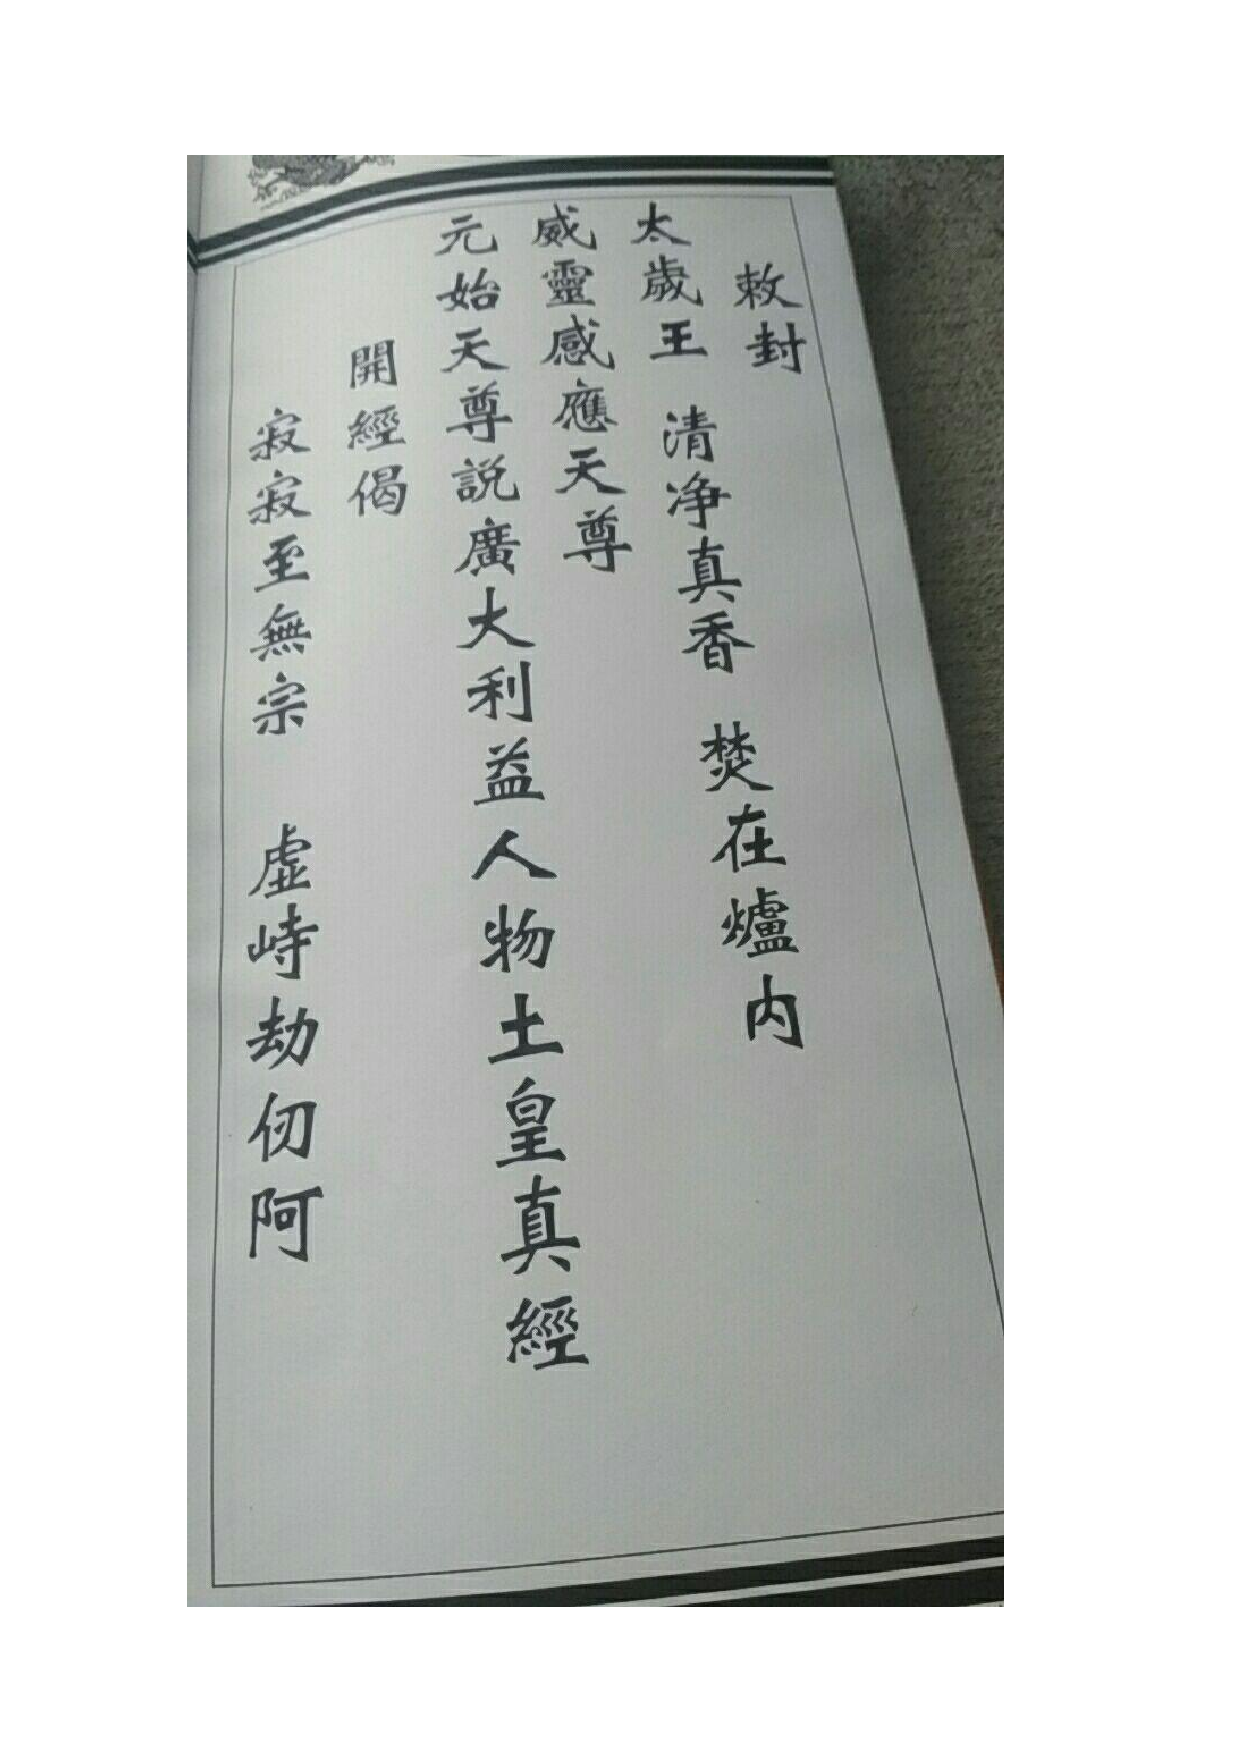 敕封
太歲王 清净真香 焚在爐内
威靈感應天尊
元始天尊説廣大利益人物土皇真經
開經偈
寂寂至無宗 虛峙劫仞阿